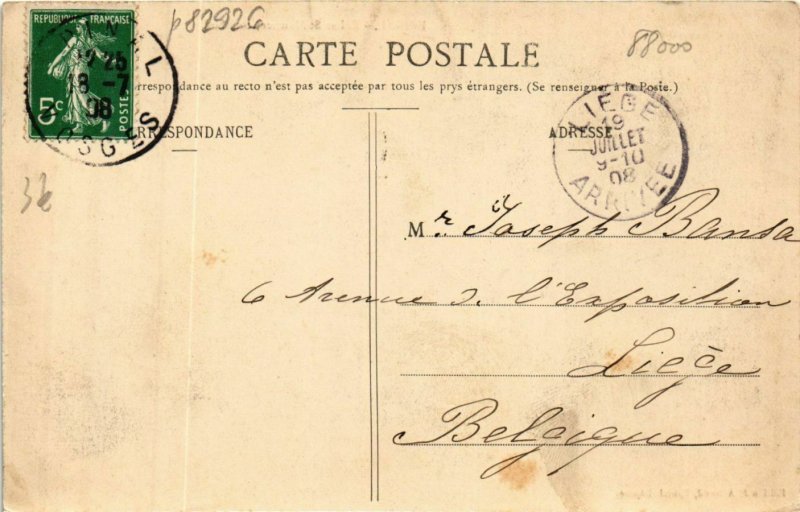 p82926
88000
REPUBLIQUE FRANÇAISE
5c
POSTES
12 25
18 -7
08
VOSGES
CARTE POSTALE
orrespondance au recto n'est pas acceptée par tous les prys étrangers. (Se renseigner à la Poste.)
RRESPONDANCE
ADRESSE
LIEGE
19
JUILLET
9-10
08
ARRIVEE
Mr. Joseph Bansa
6 Avenue d. l'Exposition
Liège
Belgique